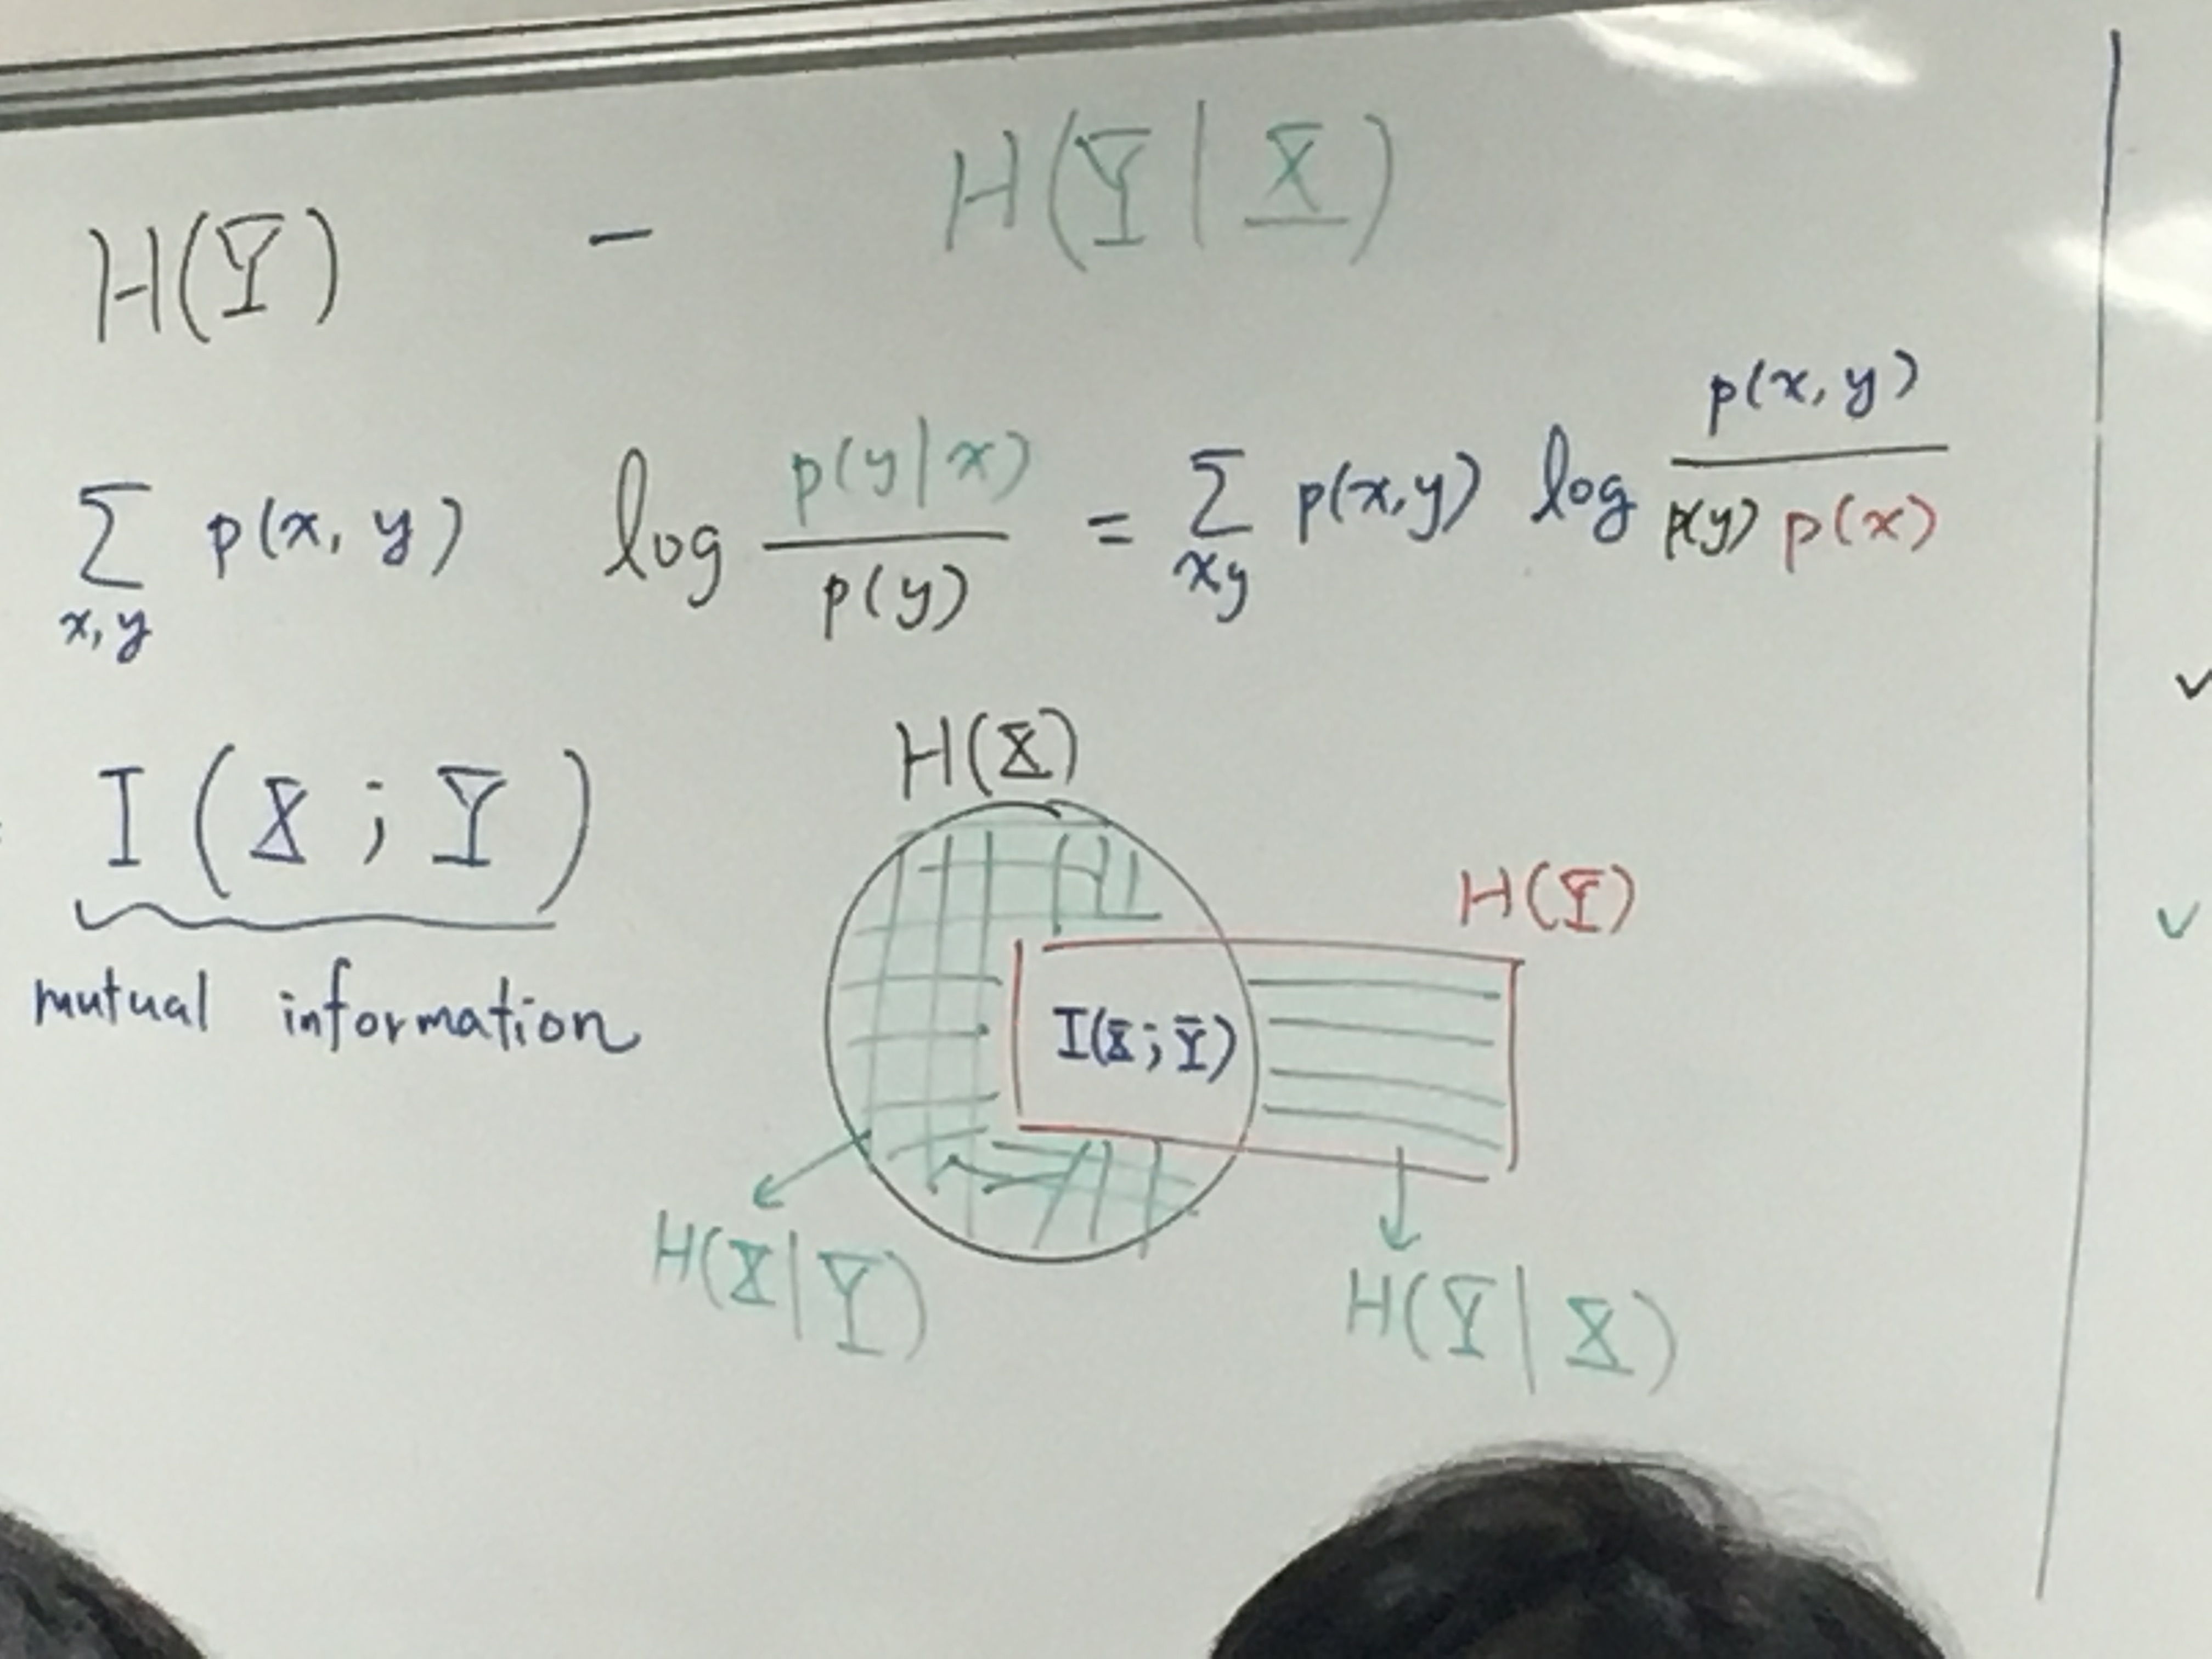 H(Y) − H(Y|X)
∑ p(x, y) log p(y|x) / p(y) = ∑ p(x,y) log p(x, y) / p(y) p(x)
x, y xy
I(X ; Y)
mutual information
H(X)
H(Y)
I(X; Y)
H(X|Y)
H(Y|X)